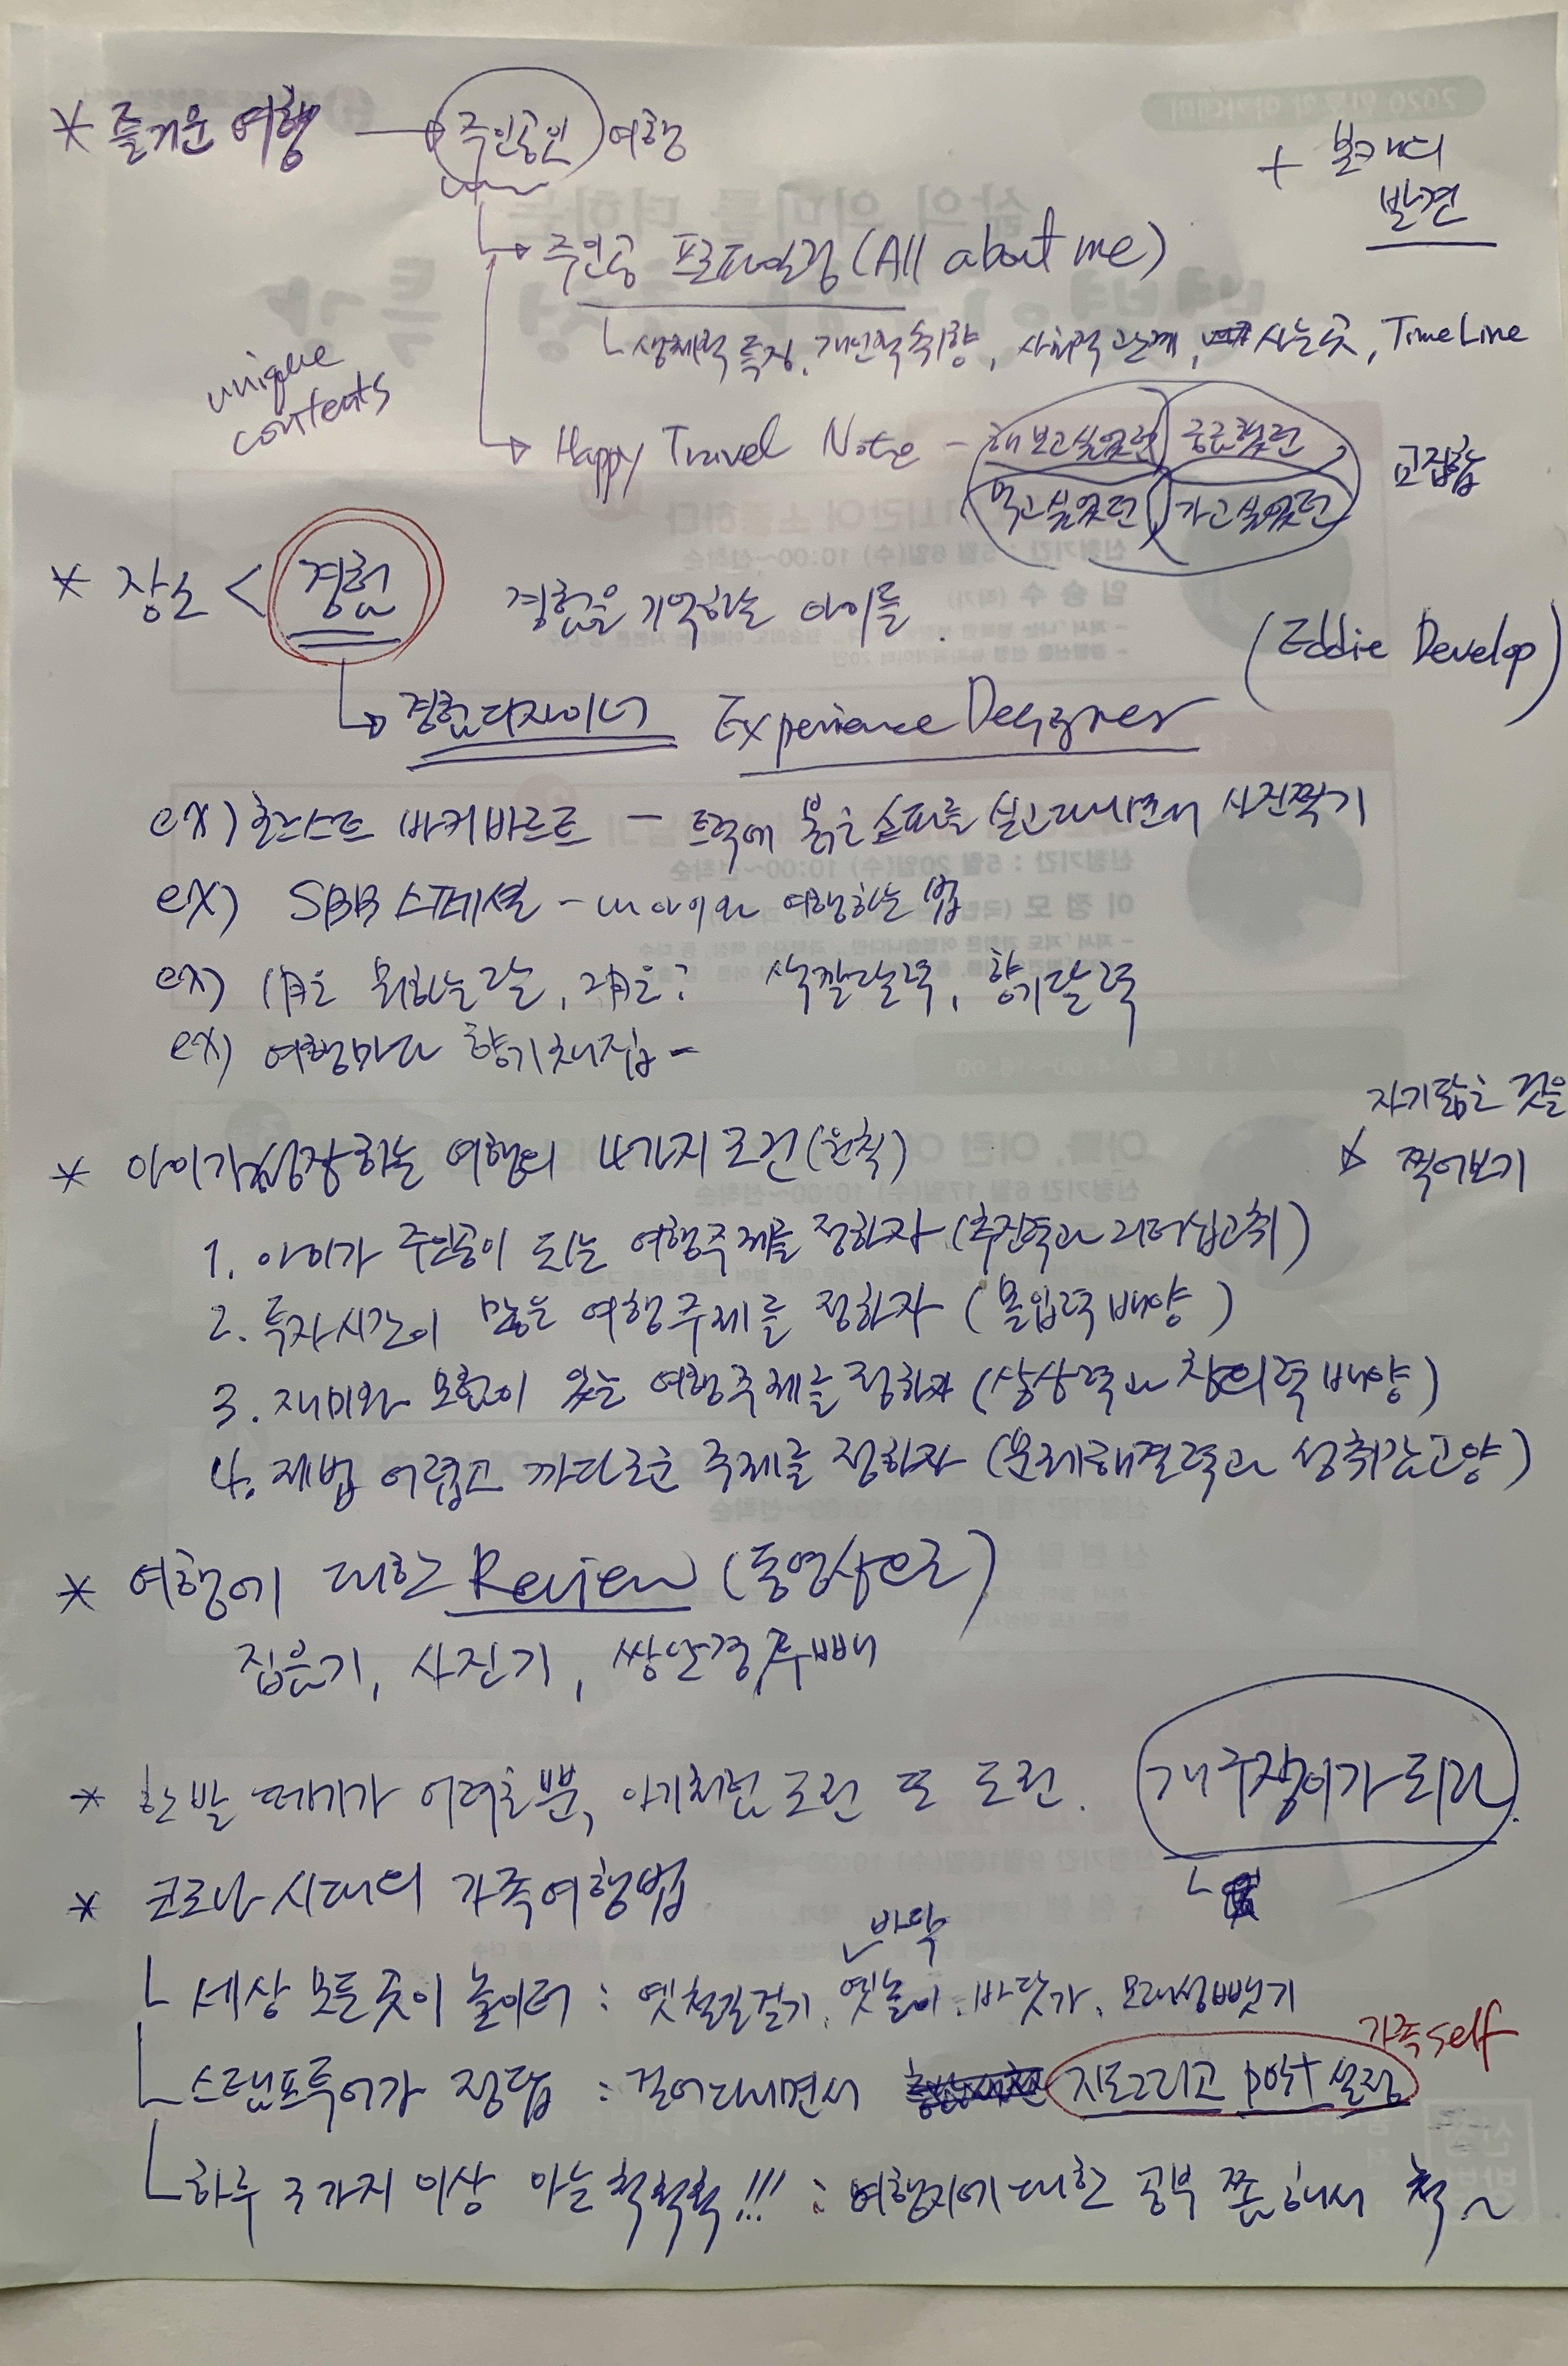 * 즐거운 여행 → 주인공인 여행
+ 볼캐디
발견
→ 주인공 프로파일링 (All about me)
└ 생체적 특징, 개인적 취향, 사회적 관계, 사는 곳, TimeLine
unique
contents
→ Happy Travel Note - 해보고싶었던 궁금했던
먹고싶었던 가고싶었던
교집합
* 장소 < 경험 경험을 기억하는 아이들.
(Eddie Develop)
→ 경험디자이너 Experience Designer
ex) 호르스트 바커바르트 - 트럭에 붉은 쇼파를 싣고 다니면서 사진찍기
ex) SBS 스페셜 - 내 아이와 여행하는 법
ex) 1月은 뭐하는 달, 2月은? 색깔달력, 향기달력
ex) 여행마다 향기채집 -
자기닮은 것을
찍어보기
* 아이가 성장하는 여행의 4가지 조건(원칙)
1. 아이가 주인공이 되는 여행주제를 정하자 (추진력과 리더십고취)
2. 투자시간이 많은 여행주제를 정하자 (몰입력 배양)
3. 재미와 모험이 있는 여행주제를 정하자 (상상력과 창의력 배양)
4. 제법 어렵고 까다로운 주제를 정하자 (문제해결력과 성취감고양)
* 여행에 대한 Review (동영상으로)
집음기, 사진기, 쌍안경, 루뻬
* 한발 떼기가 어려울뿐, 아기처럼 도전 또 도전.
개구쟁이가 되라.
* 코로나 시대의 가족여행법
바닥
└ 세상 모든 곳이 놀이터 : 옛철길걷기, 옛놀이, 바닷가, 모래성뺏기
가족self
└ 스탬프투어가 정답 : 걸어다니면서 지도그리고 post 설정
└ 하루 3가지 이상 아는 척척척!!! : 여행지에 대한 공부 쫌 해서 척~